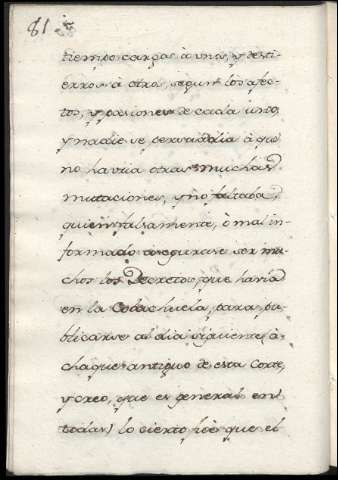 81
tiempo cargos à unos, y desti-
erros à otros, segun los afec-
tos, y pasiones de cada uno,
y nadie se persuadia à que
no havria otras muchas
mutaciones, y no faltaba
quien falsamente, ò mal in-
formado asegurase ser mu-
chos los Decretos, que havia
en la Covachuela, para pu-
blicarse al dia siguiente (à-
chaque antiguo de esta Corte,
y creo, que es general en
todas) lo cierto fue que el